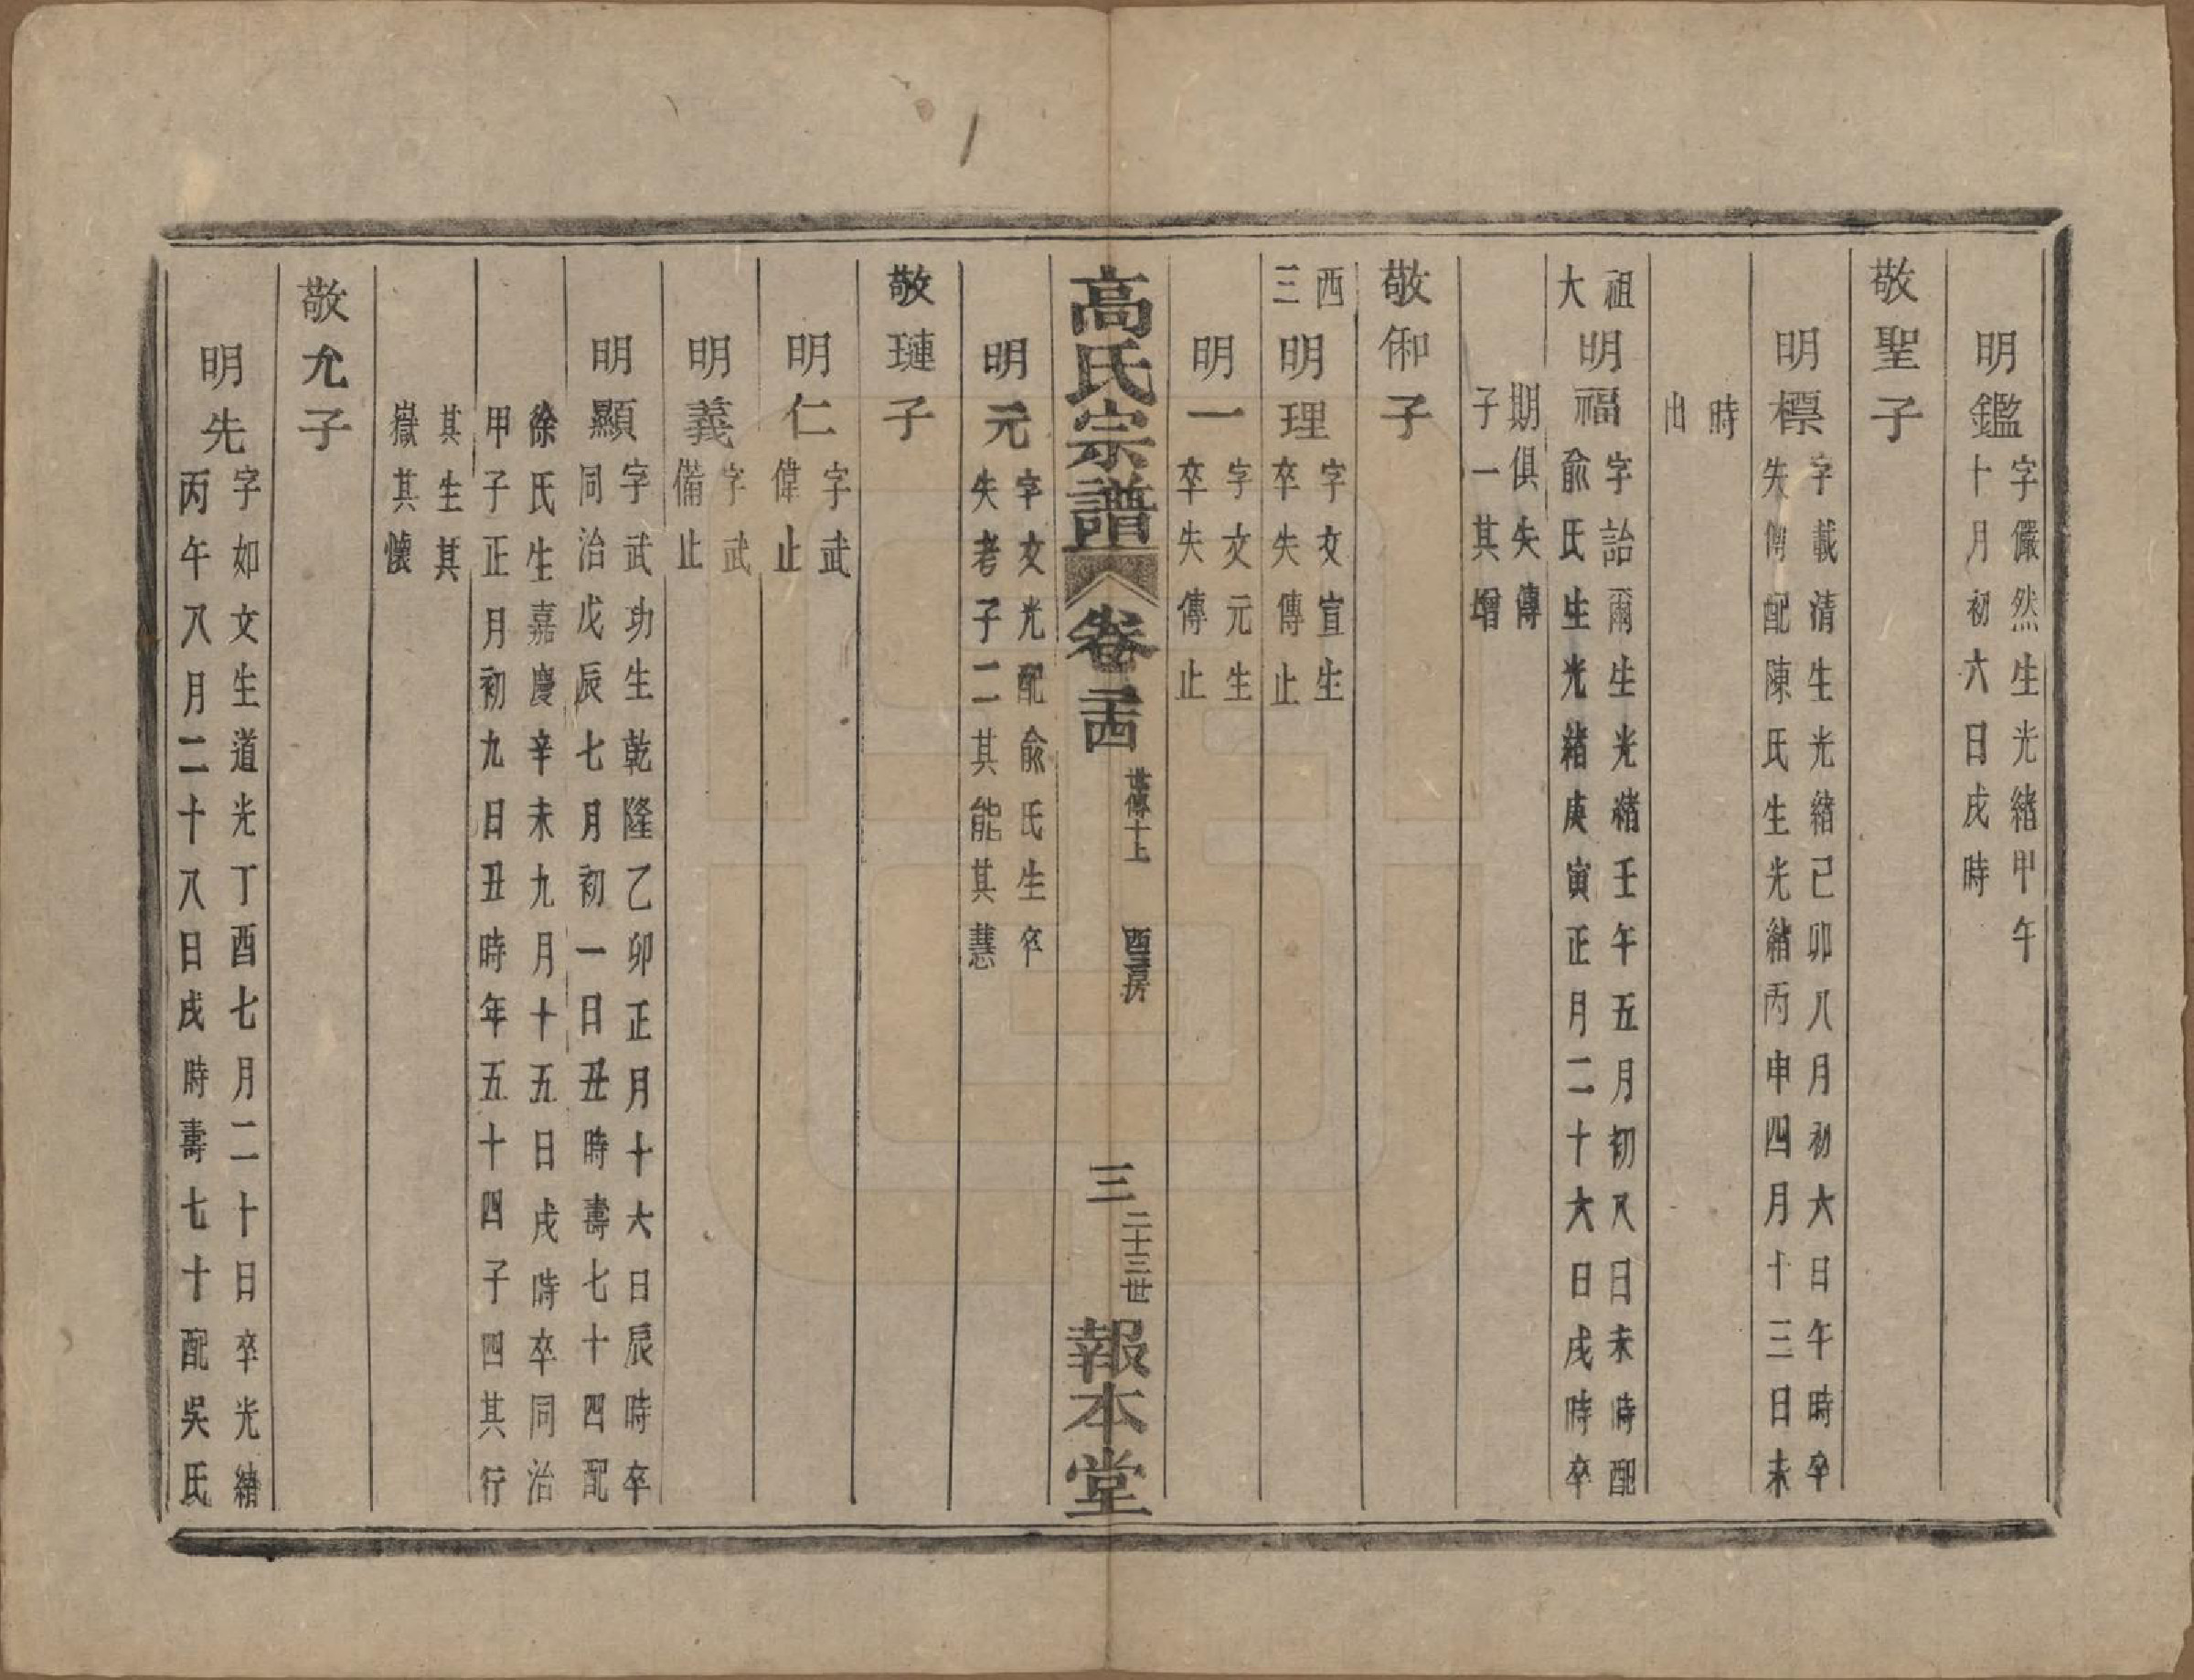 明鑑
字儼然生光緒甲午
十月初六日戌時
敬聖子
明標
字載清生光緒己卯八月初六日午時卒
失傳配陳氏生光緒丙申四月十三日未
時
出
祖
大
明福
字詒爾生光緒壬午五月初八日未時配
俞氏生光緒庚寅正月二十六日戌時卒
期俱失傳
子一其增
敬俰子
西
三
明理
字文宣生
卒失傳止
明一
字文元生
卒失傳止
高氏宗譜
卷二十四
世傳十上
酉三房
三
二十三世
報本堂
明元
字文光配俞氏生卒
失考子二其能其慧
敬璉子
明仁
字武
偉止
明義
字武
備止
明顯
字武功生乾隆乙卯正月十六日辰時卒
同治戊辰七月初一日丑時壽七十四配
徐氏生嘉慶辛未九月十五日戌時卒同治
甲子正月初九日丑時年五十四子四其行
其生其
嶽其懷
敬允子
明先
字如文生道光丁酉七月二十日卒光緒
丙午八月二十八日戌時壽七十配吳氏